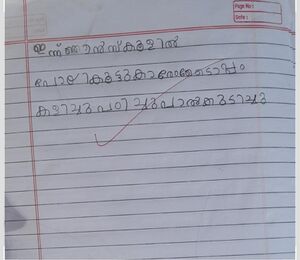 Page No :
Date :
ഇന്ന് ഞാൻ സ്കൂളിൽ
പോയി കൂട്ടുകാരോടൊപ്പം
കളിച്ചു പഠിച്ചു പാൽ കുടിച്ചു